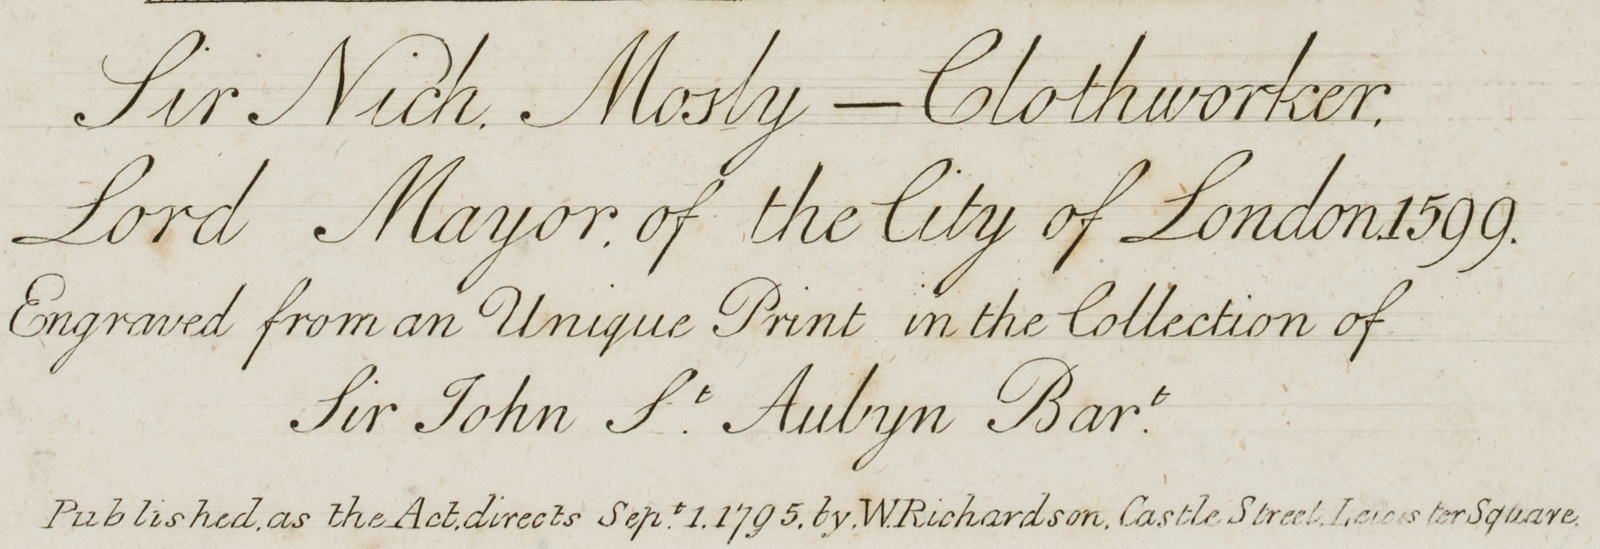 Sir Nich. Mosly — Clothworker.
Lord Mayor. of the City of London.1599.
Engraved from an Unique Print in the Collection of
Sir John S.ᵗ Aubyn Bar.ᵗ
Published, as the Act, directs Sep.ᵗ 1.1795. by, W. Richardson, Castle Street, Leicester Square.